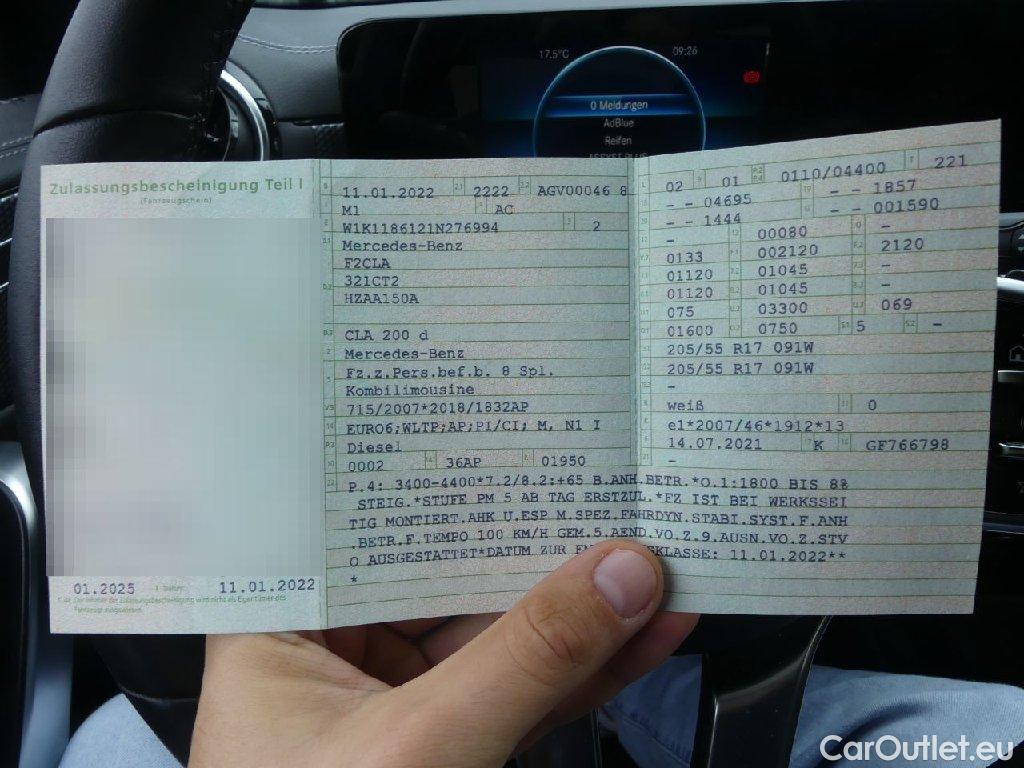 17.5°C 09:26
0 Meldungen
AdBlue
Reifen
ASSYST PLUS
Zulassungsbescheinigung Teil I
(Fahrzeugschein)
01.2025 11.01.2022
11.01.2022 2222 AGV00046 8
M1 AC
W1K1186121N276994 2
Mercedes-Benz
F2CLA
321CT2
HZAA150A
CLA 200 d
Mercedes-Benz
Fz.z.Pers.bef.b. 8 Spl.
Kombilimousine
715/2007*2018/1832AP
EURO6;WLTP;AP;PI/CI; M, N1 I
Diesel
0002 36AP 01950
02 01 0110/04400 221
- - 04695 - - 1857
- - 1444 - - 001590
- 00080 -
0133 002120 2120
01120 01045 -
01120 01045 -
075 03300 069
01600 0750 5 -
205/55 R17 091W
205/55 R17 091W
-
weiß 0
e1*2007/46*1912*13
14.07.2021 K GF766798
-
P.4: 3400-4400*7.2/8.2:+65 B.ANH.BETR.*O.1:1800 BIS 8%
STEIG.*STUFE PM 5 AB TAG ERSTZUL.*FZ IST BEI WERKSSEI
TIG MONTIERT.AHK U.ESP M.SPEZ.FAHRDYN.STABI.SYST.F.ANH
.BETR.F.TEMPO 100 KM/H GEM.5.AEND.VO.Z.9.AUSN.VO.Z.STV
O AUSGESTATTET*DATUM ZUR KLASSE: 11.01.2022**
*
CarOutlet.eu